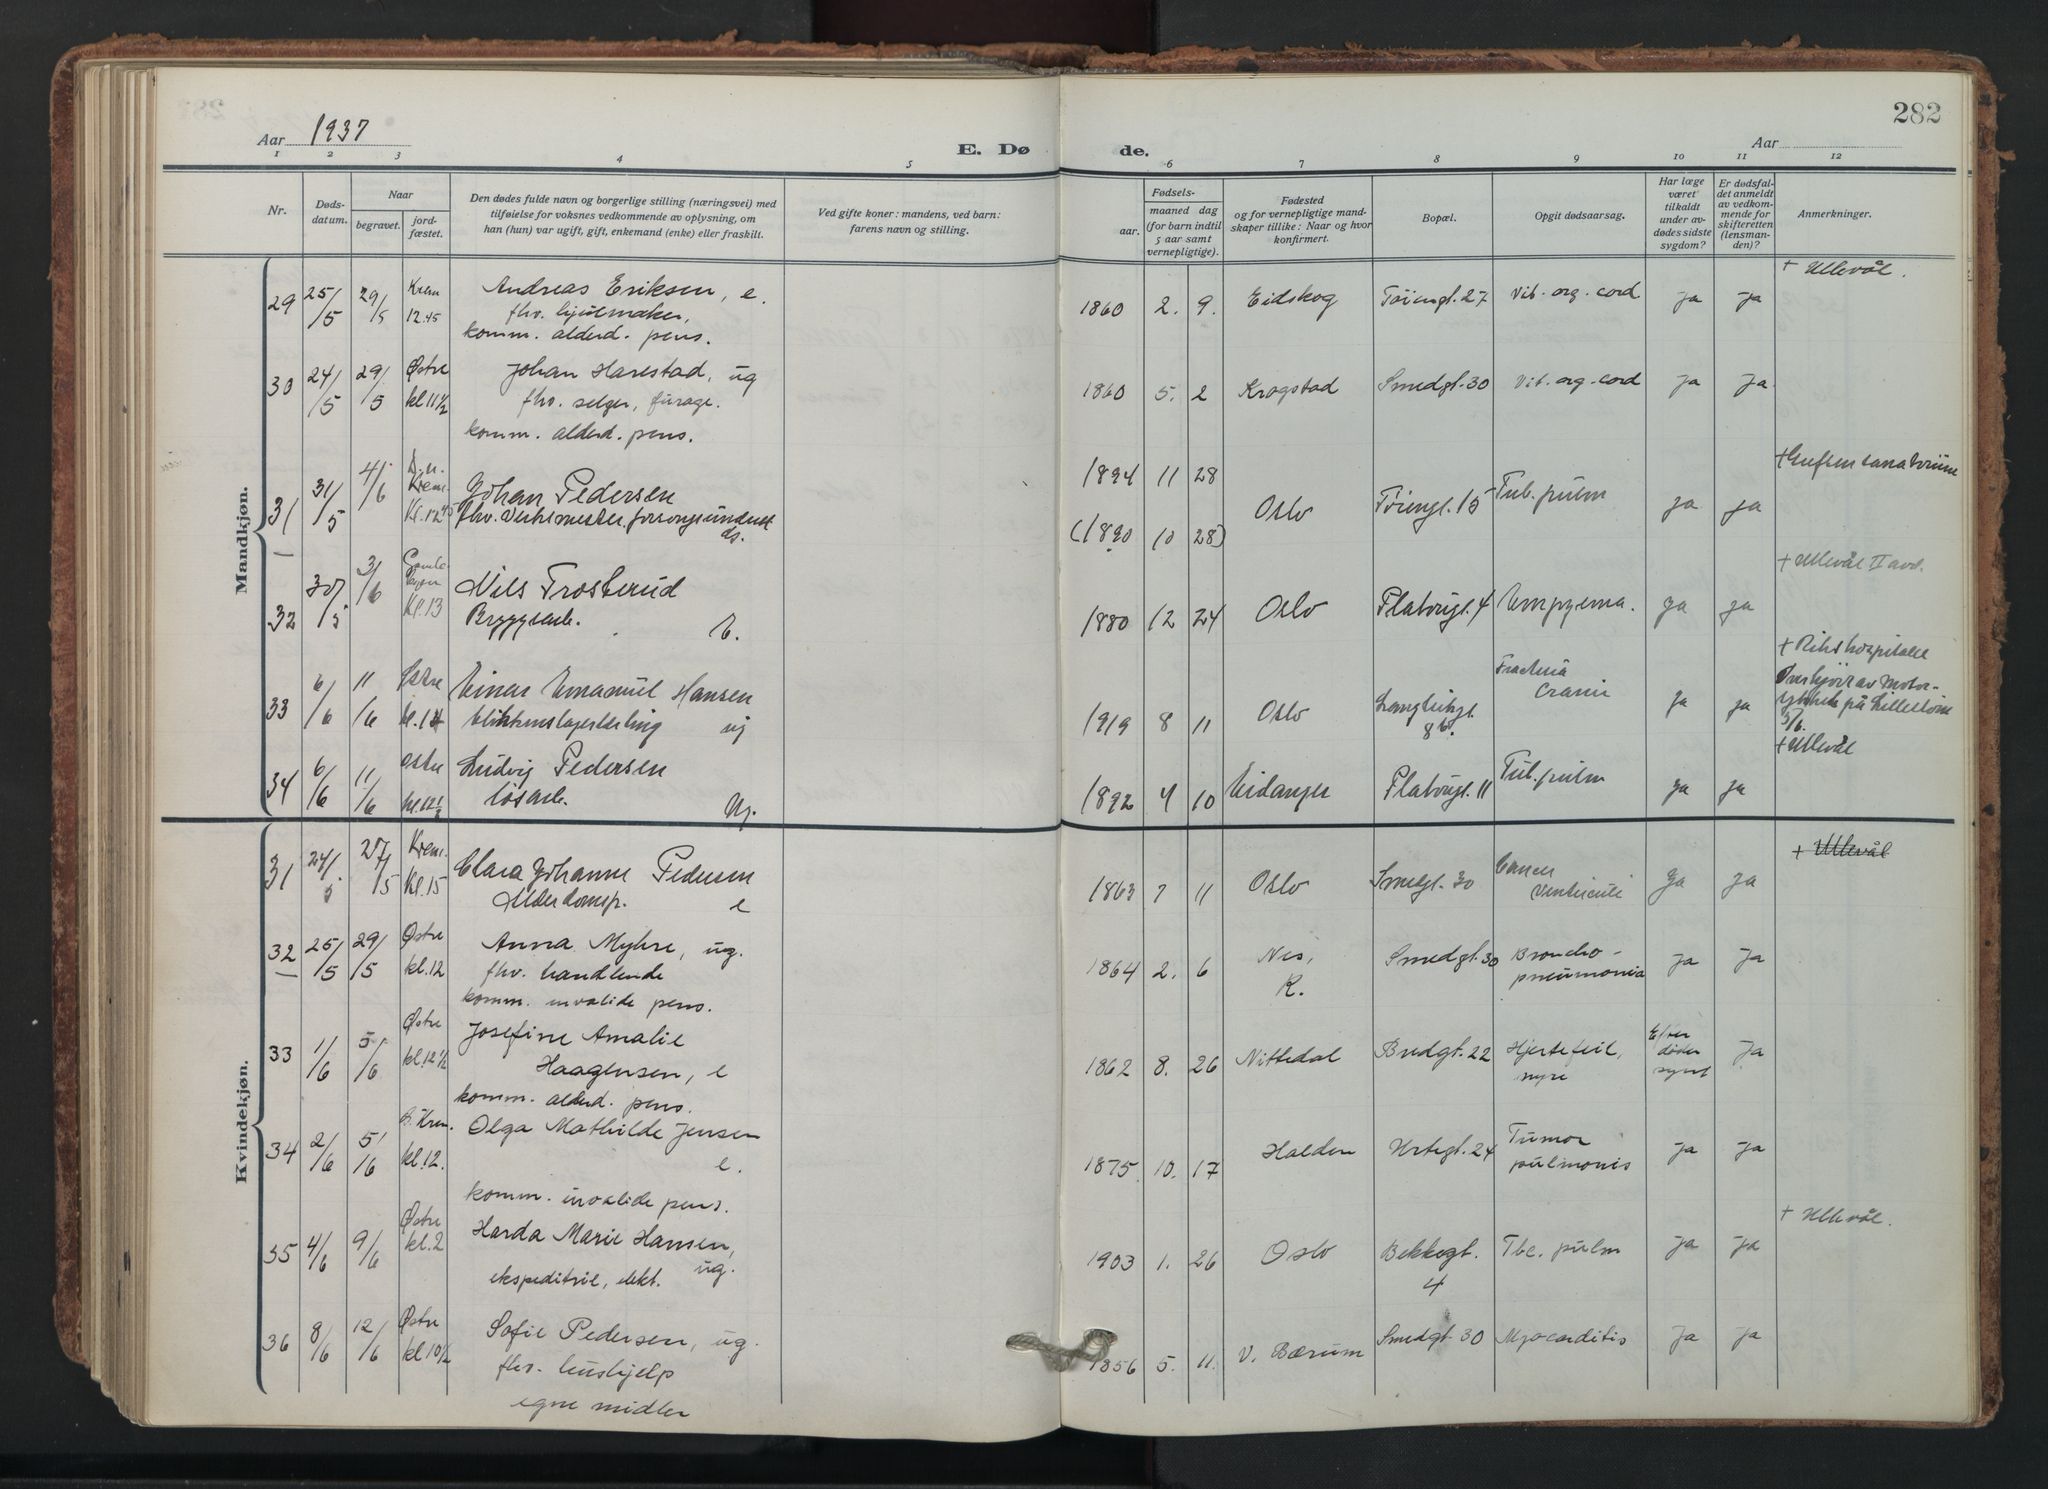 282
Aar 1937
E. Dø de.
Aar
1 2 3 4 5 6 7 8 9 10 11 12
Nr.
Døds-
datum.
Naar
begravet.
jord-
fæstet.
Den dødes fulde navn og borgerlige stilling (næringsvei) med
tilføielse for voksnes vedkommende av oplysning, om
han (hun) var ugift, gift, enkemand (enke) eller fraskilt.
Ved gifte koner: mandens, ved barn:
farens navn og stilling.
Fødsels-
aar.
maaned dag
(for barn indtil
5 aar samt
vernepligtige).
Fødested
og for vernepligtige mand-
skaper tillike: Naar og hvor
konfirmert.
Bopæl.
Opgit dødsaarsag.
Har læge
været
tilkaldt
under av-
dødes sidste
sygdom?
Er dødsfal-
det anmeldt
av vedkom-
mende for
skifteretten
(lensman-
den)?
Anmerkninger.
Mandkjøn.
29 25/5 29/5 Krem 12.45 Andreas Eriksen, e. 1860 2. 9. Eidskog Töiengt. 27 Vit. org. cord. ja ja + Ullevål.
fhv. hjulmaker,
komm. alderd. pens.
30 24/5 29/5 Østre kl 11 1/2 Johan Harestad, ug 1860 5. 2 Kragstad Smedgt. 30 Vit. org. cord ja ja
fhv. selger, furage.
komm. alderd. pens.
31 31/5 4/6 Krem. Kl. 12 45 Johan Pedersen 1894 11 28 Oslo Töiengt. 15 Tub. pulm ja ja
(1890 10 28)
32 30/5 3/6 Kl. 13 Nils Frosterud 1880 12 24 Oslo Platougt. 4 Empyema. ja ja + Ullevål II avd.
Bryggearb. E.
33 6/6 11/6 Østre kl. 14 Einar Emanuel Hansen 1919 8 11 Oslo 8b. Fractura cranii ja ja + Rikshospitalet
blikkenslagerlærling ug
Overkjört av Motor-
på Lilleström
5/6.
34 6/6 11/6 Østre kl. 12 1/2 Ludvig Pedersen 1892 4 10 Eidanger Platougt. 11 Tub. pulm ja ja + Ullevål
lösarb. Ug.
Kvindekjøn.
31 24/5 27/5 Krem. Kl. 15 Clara Johanne Pedersen 1863 7 11 Oslo Smedgt. 30 Cancer ventriculi ja ja + Ullevål
Alderdomsp. e
32 25/5 29/5 Østre kl. 12 Anna Myhre, ug. 1864 2. 6 Nes, R. Smedgt. 30 Broncho-
pneumonia ja ja
fhv. handlende
komm. invalide pens.
33 1/6 5/6 Østre kl. 12 1/2 Josefine Amalie 1862 8. 26 Nittedal Bredgt. 22 Hjertefeil, nyre Efter döden synt ja
Haagensen, e
komm. alderd. pens.
34 2/6 5/6 Krem. kl. 12. Olga Mathilde Jensen 1875. 10. 17 Halden Urtegt. 24 Tumor
pulmonis ja ja
e.
komm. invalide pens.
35 4/6 9/6 Østre kl. 2 Harda Marie Hansen, 1903 1. 26 Oslo Bekkegt. 4 Tbc. pulm ja ja + Ullevål.
ekspeditrie, elekt. ug.
36 8/6 12/6 Østre kl 10 1/2 Sofie Pedersen, ug. 1856 5. 11. V. Bærum Smedgt. 30 Myocarditis ja ja
fhv. hushjelp
egne midler